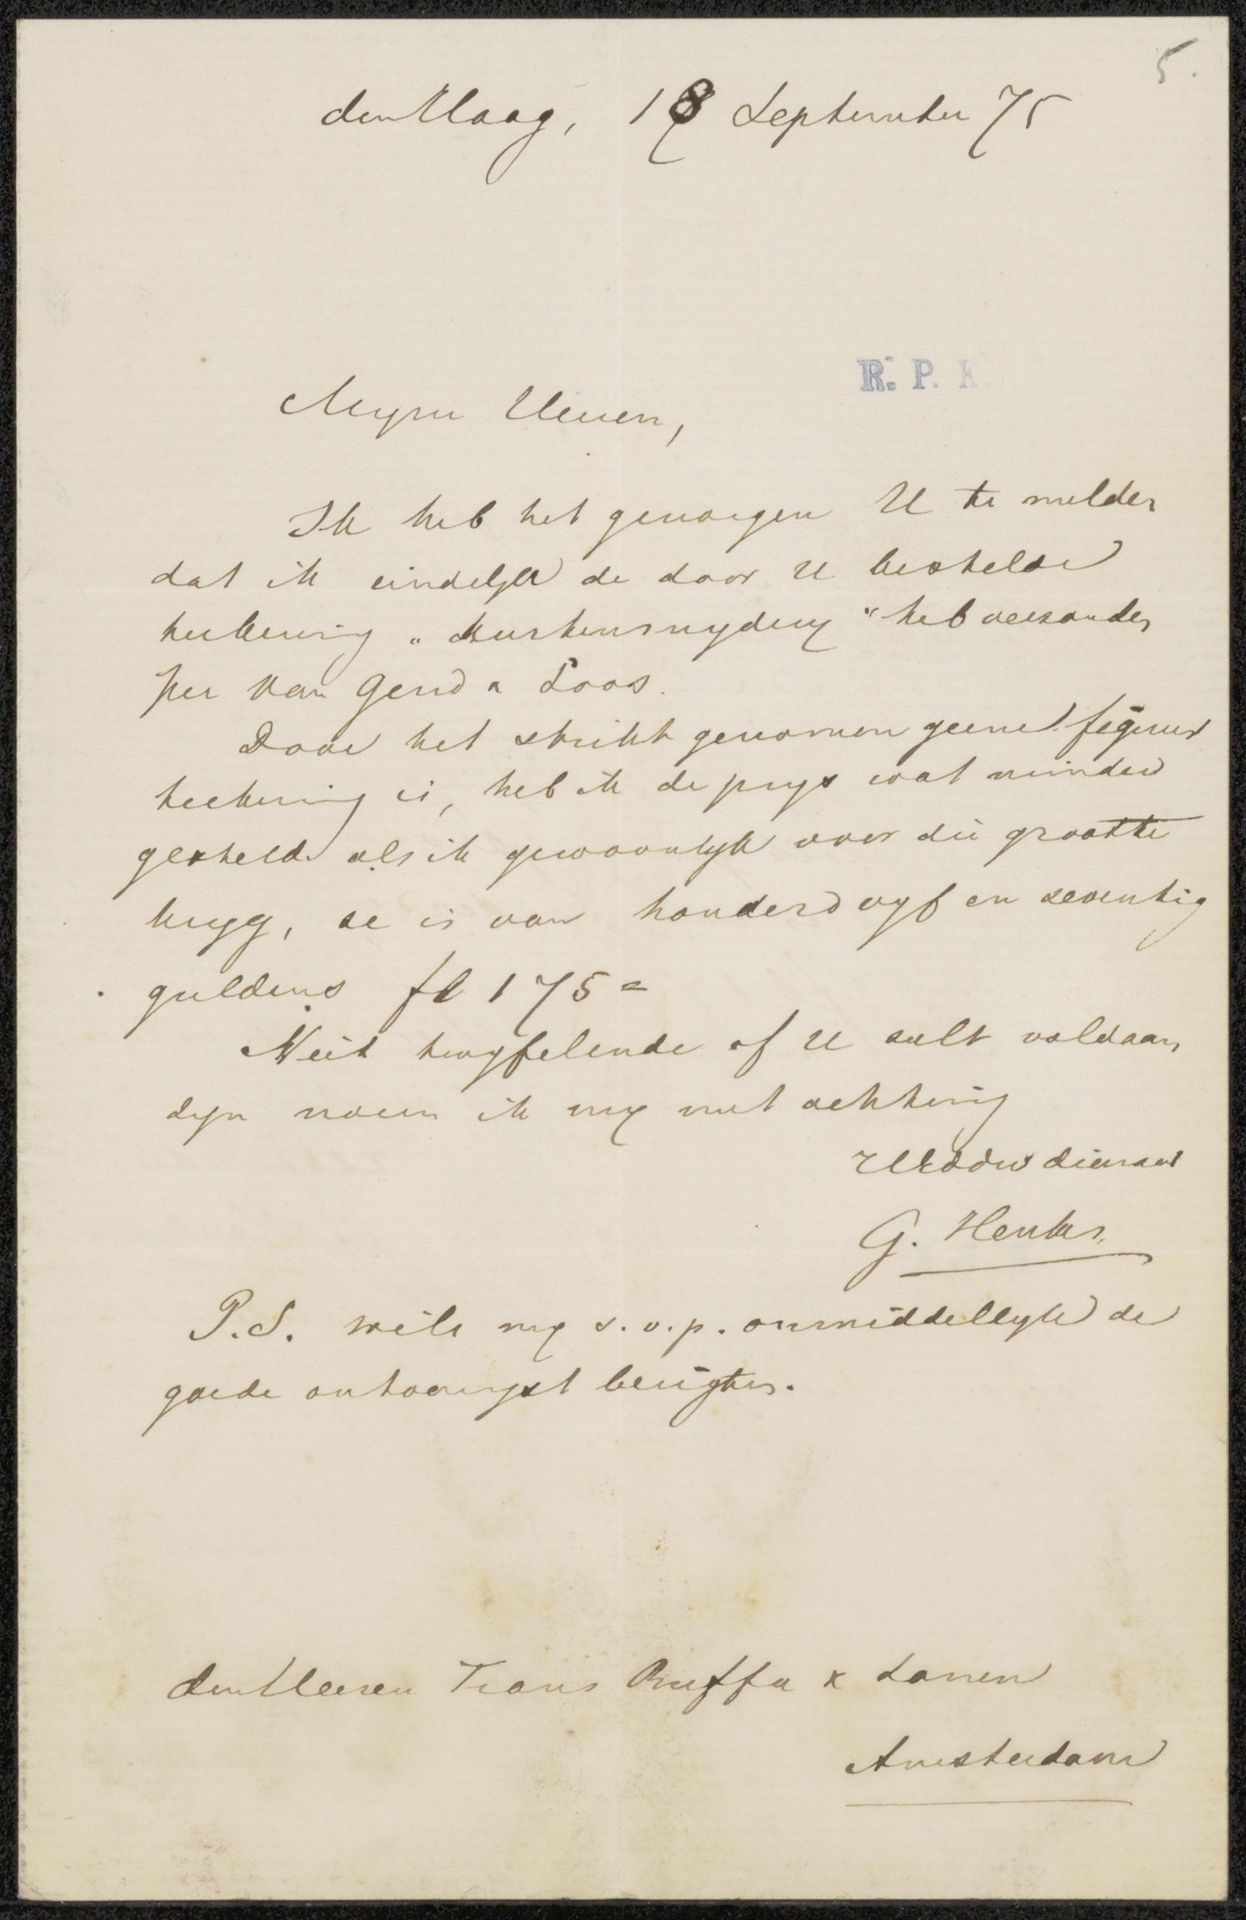 5.
den Haag, 18 September 75
R. P. K.
Myne Heeren,
Ik heb het genoegen U te melden
dat ik eindelyk de door U bestelde
teekening „Kurkensnydery" heb verzonden
per van Gend & Loos.
Daar het strikt genomen geene figuur
teekening is, heb ik de prys wat minder
gesteld als ik gewoonlyk voor die grootte
kryg, ze is van honderd vyf en zeventig
guldens fl 175=
Niet twyfelende of U zult voldaan
zyn noem ik my met achting
UEddw dienaar
G. Henkes
P.S. wilt my s.v.p. onmiddellyk de
goede ontvangst berigten.
den Heeren Frans Buffa & Zonen
Amsterdam